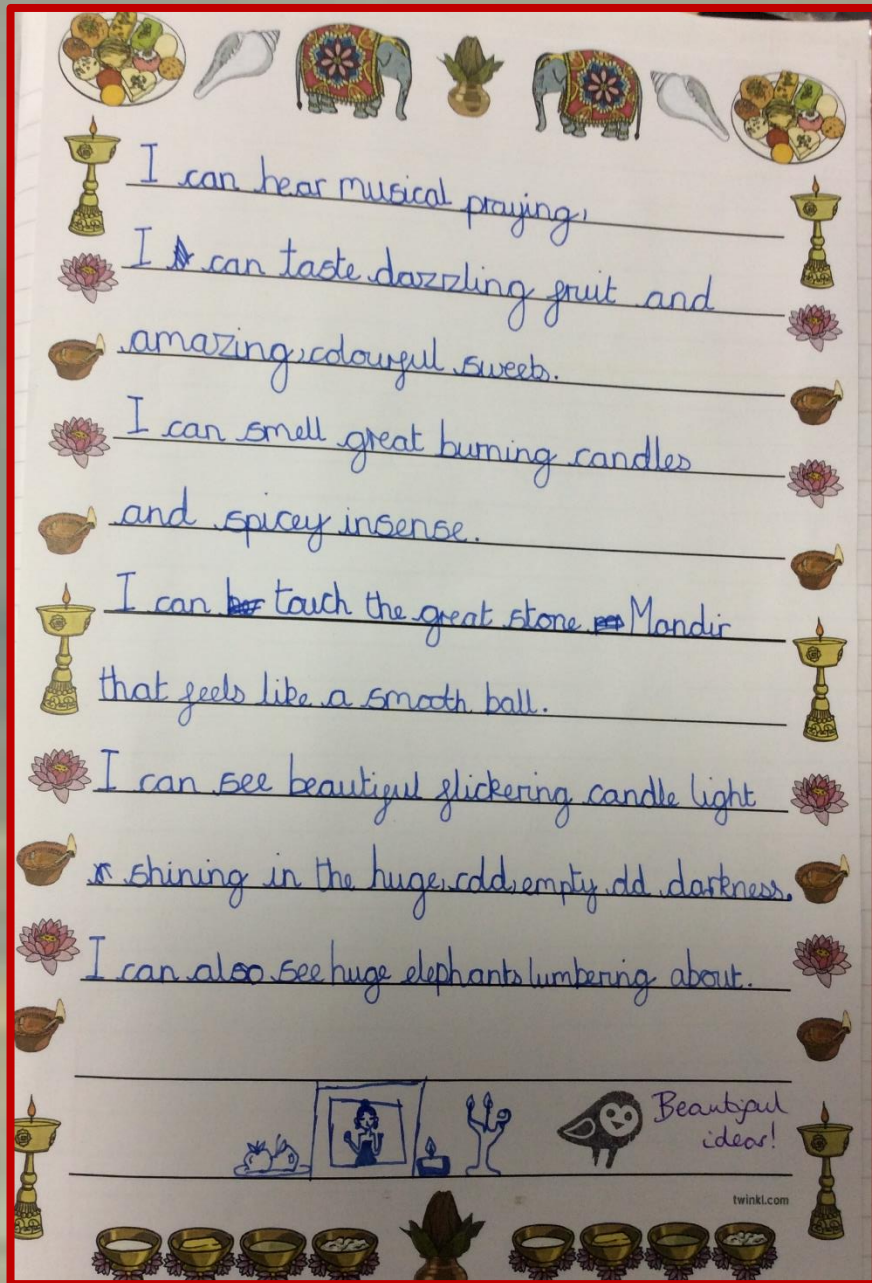 I can hear musical praying,
I can taste dazzling fruit and
amazing, colourful sweets.
I can smell great burning candles
and spicey insense.
I can touch the great stone Mandir
that feels like a smooth ball.
I can see beautiful flickering candle light
shining in the huge, cold, empty old darkness.
I can also see huge elephants lumbering about.
Beautiful
ideas!
twinkl.com